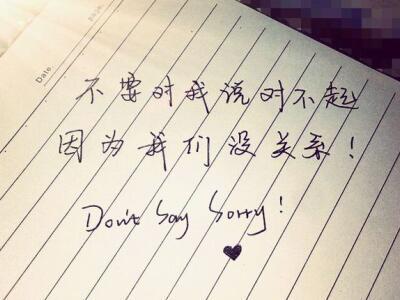 Date
不要对我说对不起
因为我们没关系！
Don't Say Sorry!